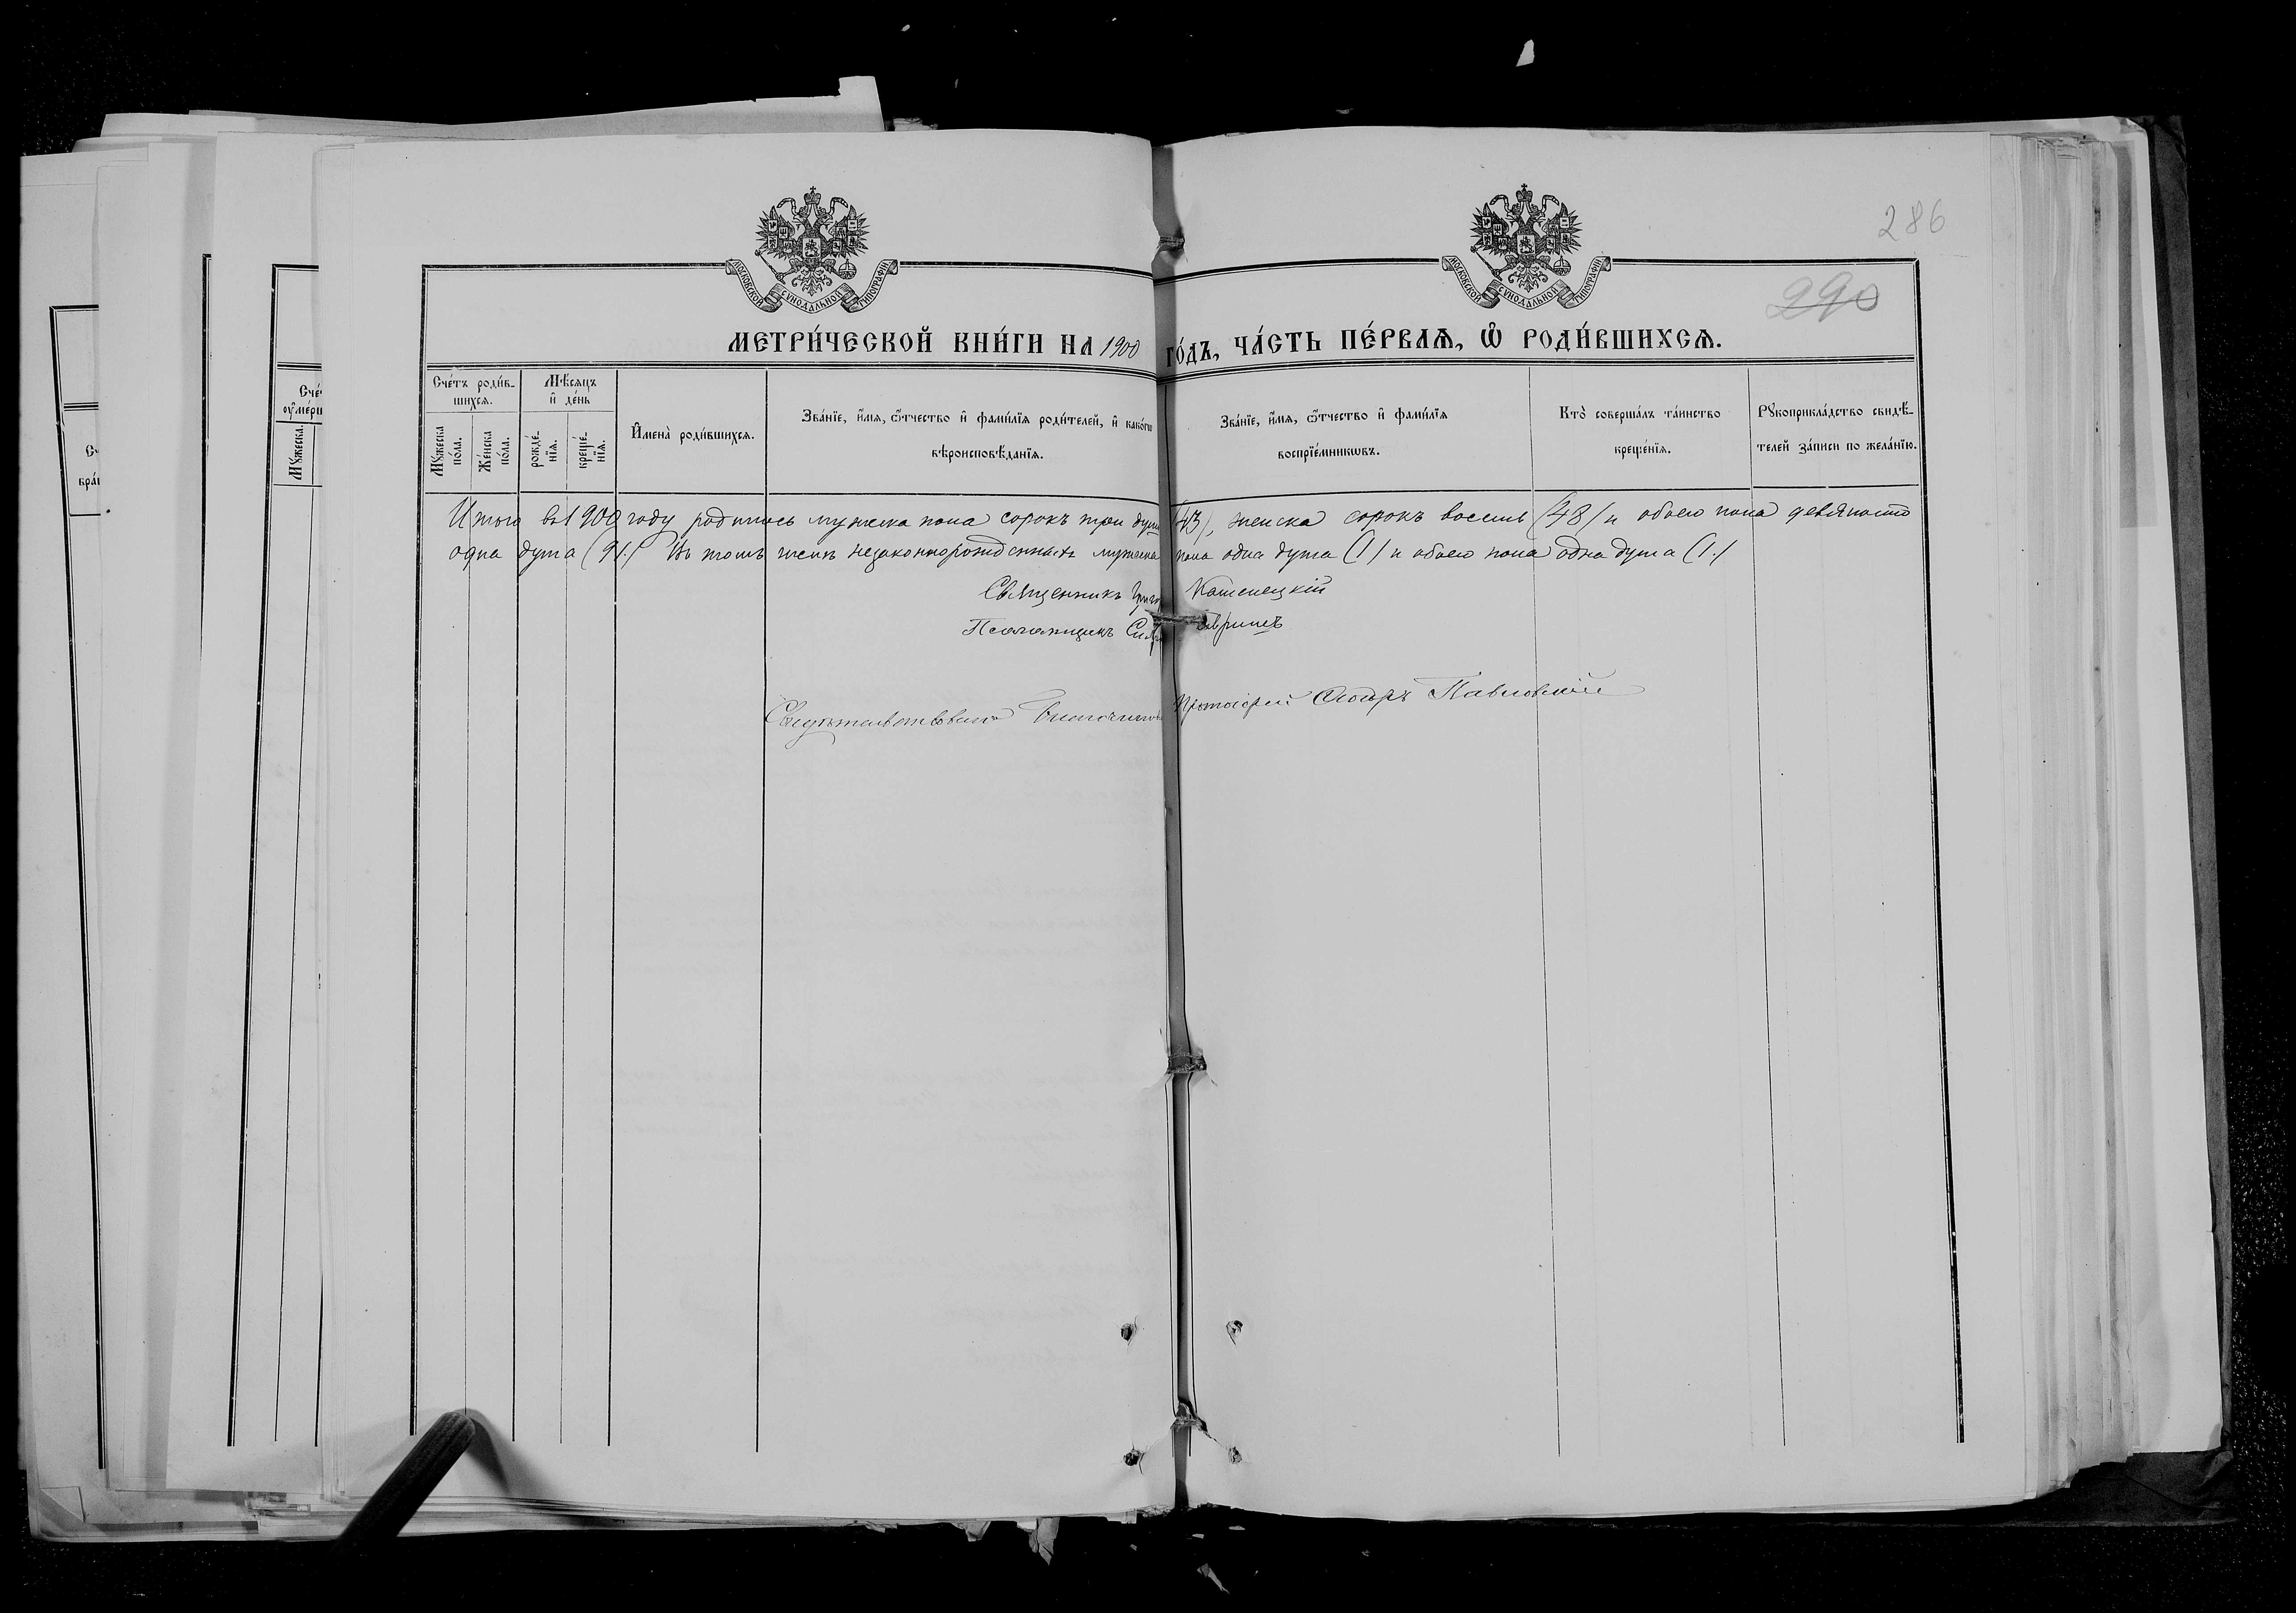 286
290
МОСКОВСКОЙ СУНОДАЛЬНОЙ ТИПОГРАФІИ
МОСКОВСКОЙ СУНОДАЛЬНОЙ ТИПОГРАФІИ
МЕТРИ́ЧЕСКОЙ КНИ́ГИ НА 1900 ГО́ДЪ, ЧА́СТЬ ПЕ́РВАѦ, Ѡ҆ РОДИ́ВШИХСѦ.
Сче́тъ роди́в-
шихсѧ.
Мꙋ́жеска
по́ла.
Же́нска
по́ла.
Мѣ́сѧцъ
и҆ де́нь
рожде́-
нїѧ.
креще́-
нїѧ.
И҆мена̀ роди́вшихсѧ.
Зва́нїе, и҆́мѧ, ѻ҆́тчество и҆ фами́лїѧ роди́телей, и҆ како́гѡ
вѣроисповѣ́данїѧ.
Зва́нїе, и҆́мѧ, ѻ҆́тчество и҆ фами́лїѧ
воспрїе́мникѡвъ.
Кто̀ соверша́лъ та́инство
креще́нїѧ.
Рꙋкоприкла́дство свидѣ́-
телей за́писи по жела́нїю.
Итого въ 1900 году родилось мужеска пола сорокъ три души (43), женска сорокъ восемь (48) и обоего пола девяносто
одна душа (91.) Въ томъ числѣ незаконнорожденныхъ мужеска пола одна душа (1) и обоего пола одна душа (1.)
Священникъ Каменецкій
Псаломщикъ
Свидѣтельствовалъ Благочинный Протоіерей Ѳеодоръ Павловскій
Сче́
оу҆ме́рш
Мꙋ́жеска
Сч
бра́